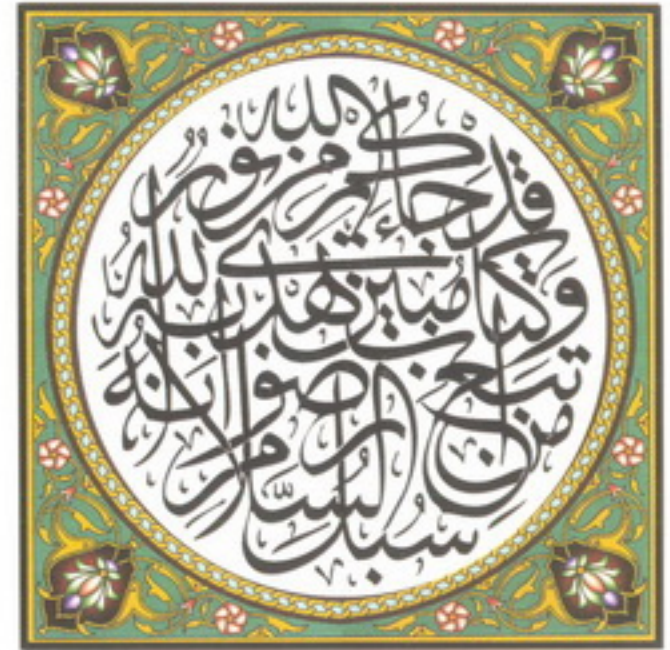 قد جاءكم من الله نور
وكتاب مبين يهدي به الله
من اتبع رضوانه
سبل السلام